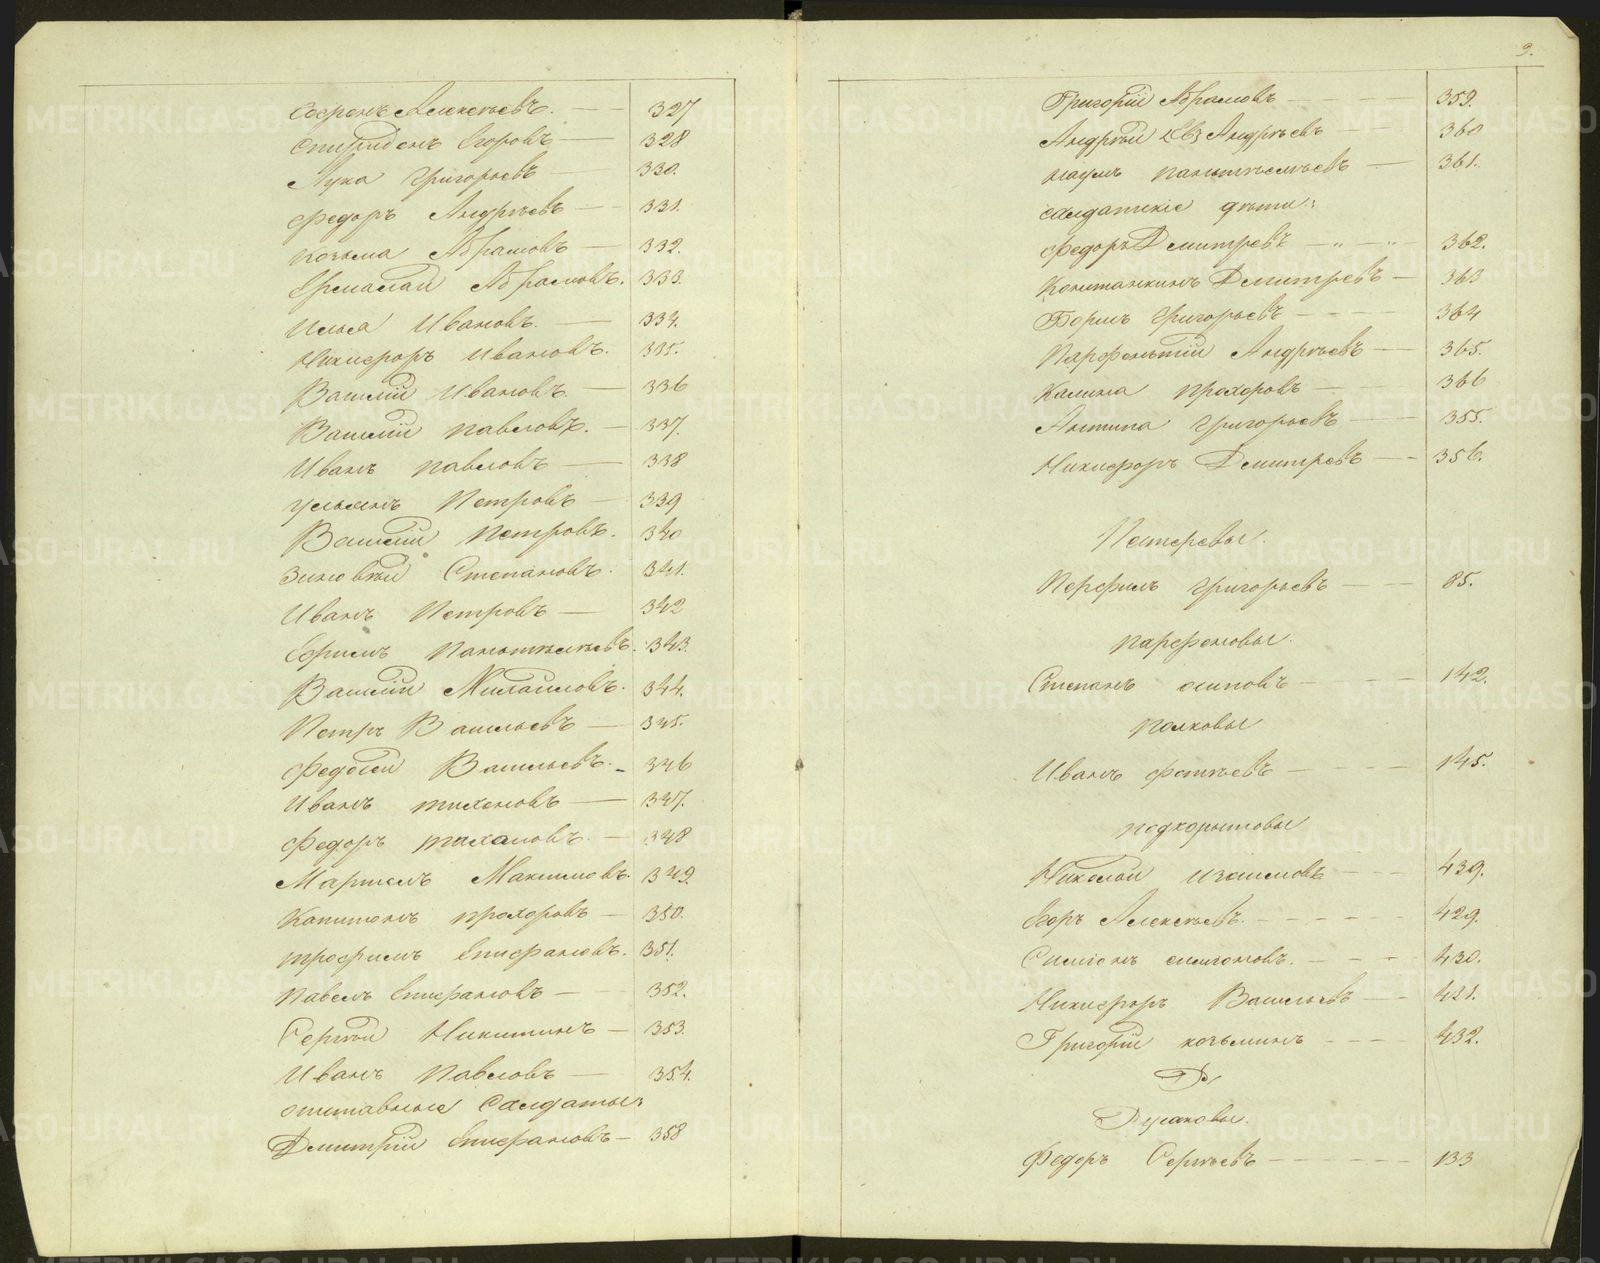 Софронъ Алексѣевъ. — 327
Спиридонъ Егоровъ — 328
Лука Григорьевъ — 330.
Федоръ Андрѣевъ — 331.
Козьма Абрамовъ — 332.
Ермалай Абрамовъ. 333.
Илья Ивановъ. — 334.
Никифоръ Ивановъ. 335.
Василій Ивановъ — 336
Василій Павловъ. — 337.
Иванъ Павловъ — 338
Ульянъ Петровъ — 339
Василій Петровъ. 340
Зиновѣй Степановъ. 341.
Иванъ Петровъ — 342
Ефимъ Пантѣлѣевъ. 343.
Василій Михайловъ. 344.
Петръ Васильевъ — 345.
Федосей Васильевъ. 346
Иванъ Тихоновъ — 347.
Федоръ Тихоновъ. — 348
Мартемъ Максимовъ. 349.
Капитонъ Прохоровъ — 350.
Трофимъ Епифановъ. 351.
Павелъ Епифановъ — 352.
Сергѣй Никитинъ — 353.
Иванъ Павловъ — 354.
отставные Салдаты:
Дмитрій Епифановъ — 358
3.
Григорій Абрамовъ — 359.
Андрѣй Андрѣевъ — 360
Наумъ Пантѣлѣевъ — 361.
Салдатскіе дѣти:
Федоръ Дмитревъ — 〃 — 〃 — 362.
Константинъ Дмитревъ — 363
Борисъ Григорьевъ — 364
Парфентій Андрѣевъ — 365.
Калина Прохоровъ — 366
Антипа Григорьевъ — 355.
Никифоръ Дмитревъ — 356.
Пестеревы.
Перфилъ Григорьевъ — 85.
Парфеновы.
Степанъ Осиповъ — 142.
Полковы
Иванъ Фотѣевъ — 145.
Подкорытовы
Николай Изосимовъ — 439.
Егоръ Алексѣевъ. — 429.
Симіонъ Симіоновъ. — 430.
Никифоръ Васильевъ — 431.
Григорій Козьминъ — 432.
Р
Русаковы.
Федоръ Сергѣевъ — 133
METRIKI.GASO-URAL.RU